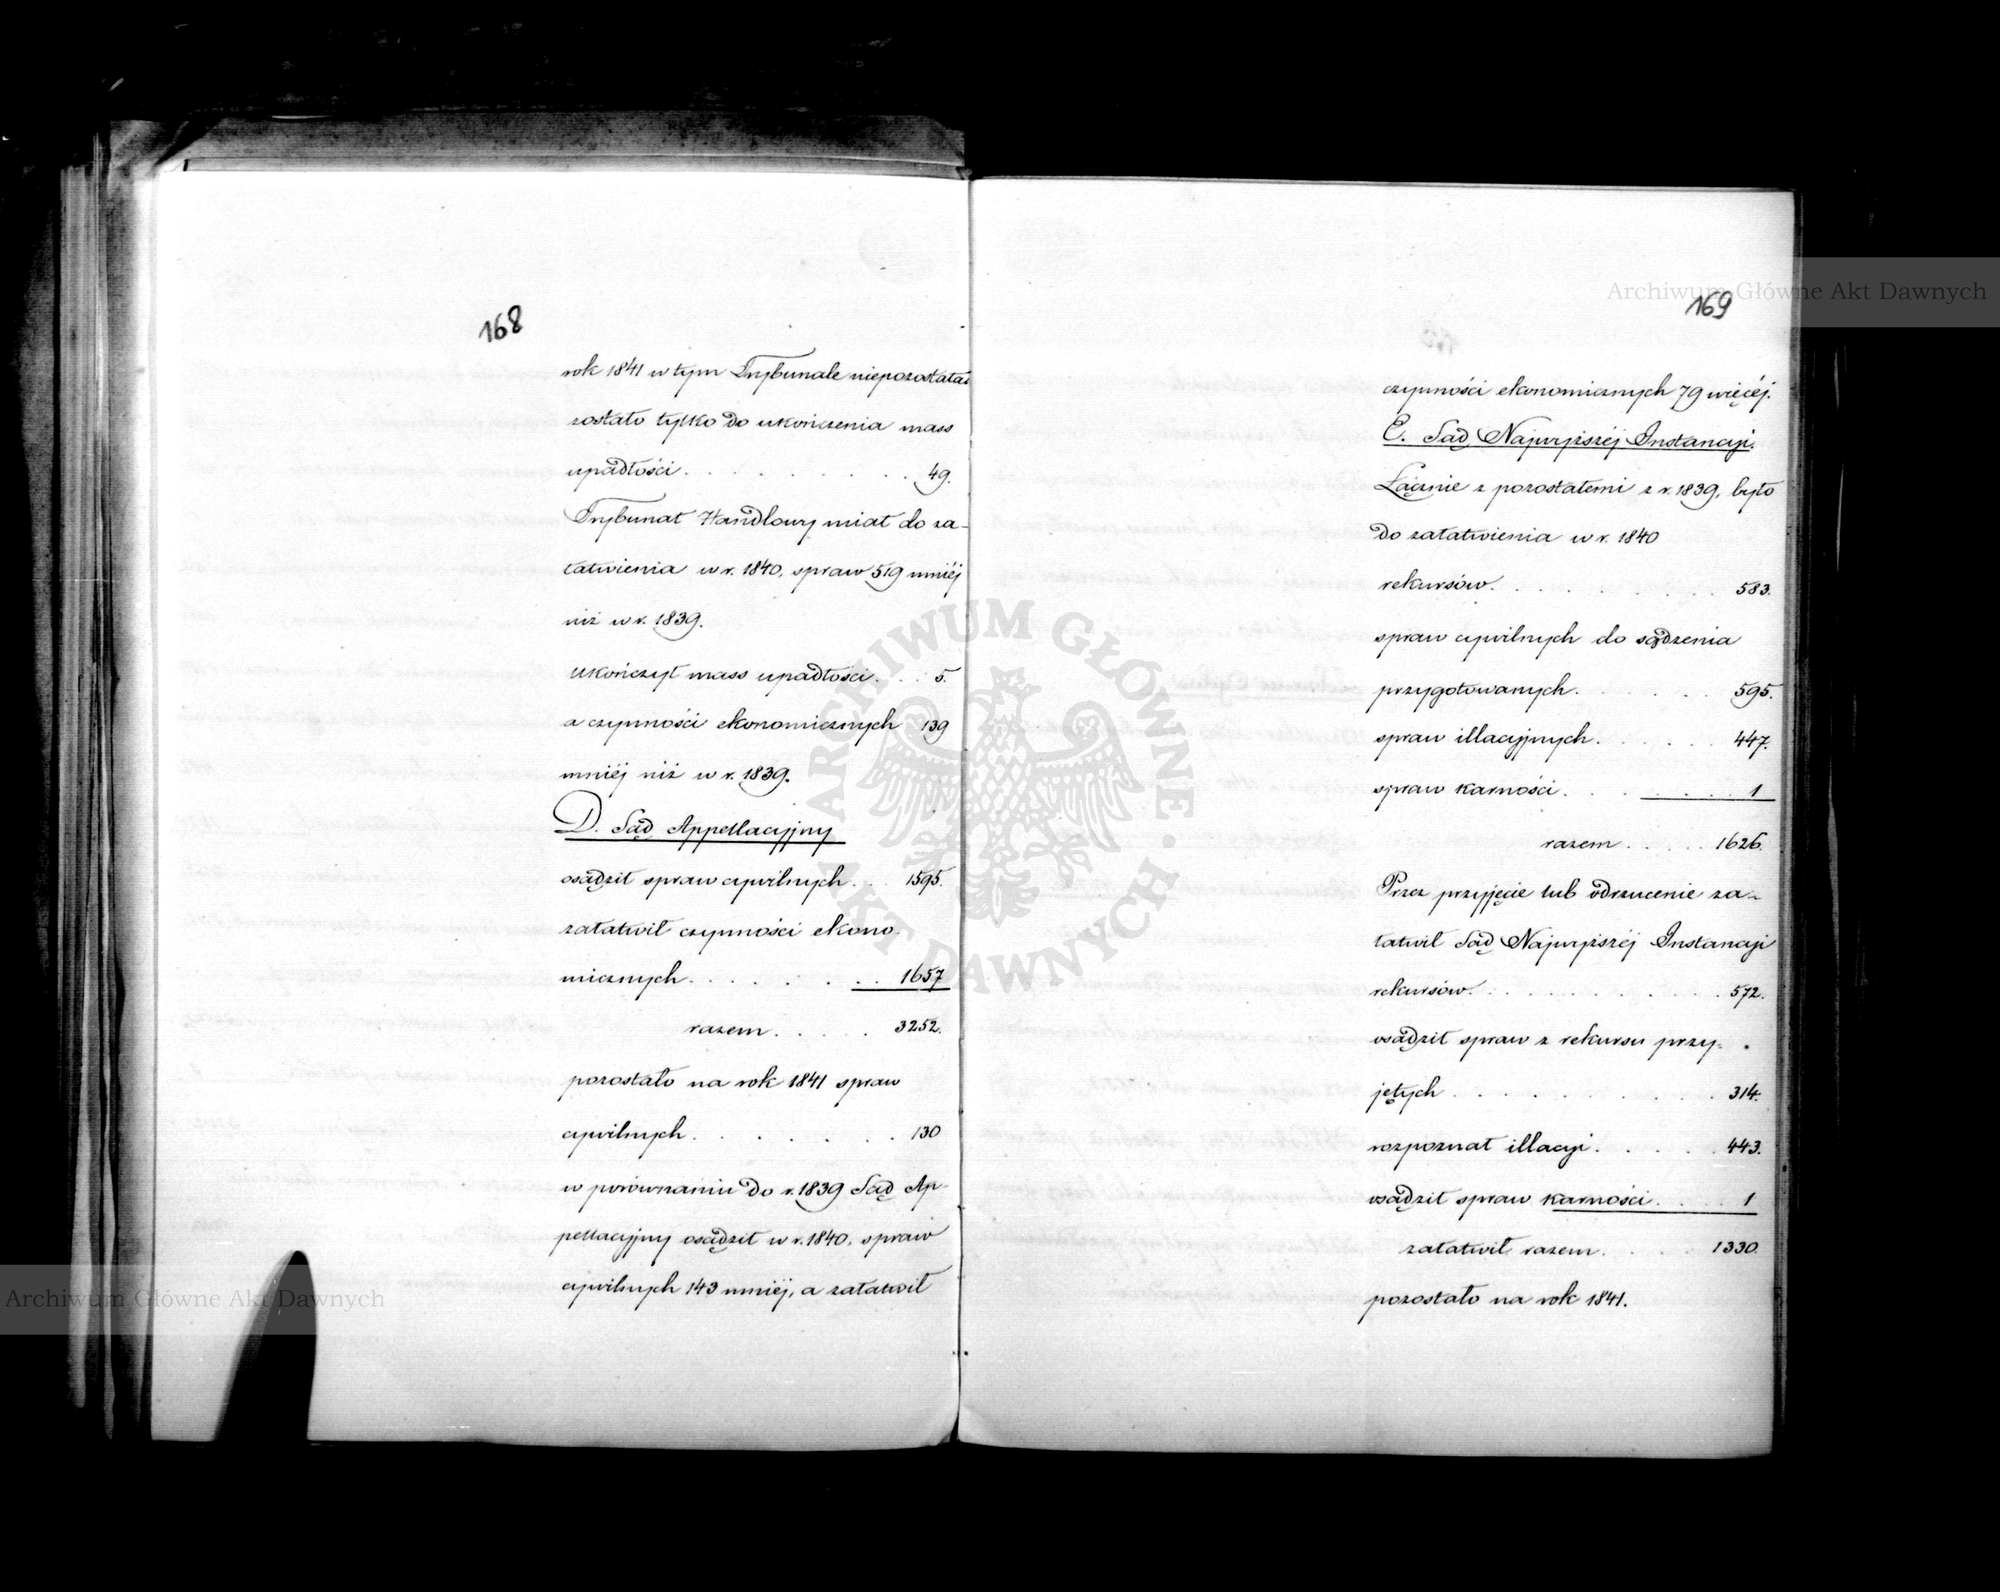 168
rok 1841 w tym Trybunale niepozostała
zostało tylko do ukończenia mass
upadłości . . . . . . . . . 49.
Trybunał Handlowy miał do za-
łatwienia w r. 1840, spraw 519 mniéj
niż w r. 1839.
ukończył mass upadłości . . . 5.
a czynności ekonomicznych 139
mniéj niż w r. 1839.
D. Sąd Appellacyjny
osądził spraw cywilnych . . . 1595.
załatwił czynności ekono-
micznych . . . . . . . 1657
razem . . . . . 3252.
pozostało na rok 1841 spraw
cywilnych . . . . . . . 130
w porównaniu do r. 1839 Sąd Ap-
pellacyjny osądził w r. 1840, spraw
cywilnych 143 mniéj, a załatwił
169
czynności ekonomicznych 79 więcéj.
E. Sąd Najwyższéj Instancyi.
Łącznie z pozostałemi z r. 1839, było
do załatwienia w r. 1840
rekursów . . . . . . . . 583.
spraw cywilnych do sądzenia
przygotowanych . . . . . . 595.
spraw illacyjnych . . . . . . 447.
spraw karności . . . . . . . 1
razem . . . . . 1626.
Przez przyjęcie lub odrzucenie za-
łatwił Sąd Najwyższéj Instancyi
rekursów . . . . . . . . . 572.
osądził spraw z rekursu przy-
jętych . . . . . . . . . . 314.
rozpoznał illacyi . . . . . . 443.
osądził spraw karności . . . . 1
załatwił razem . . . . . 1330.
pozostało na rok 1841.
Archiwum Główne Akt Dawnych
Archiwum Główne Akt Dawnych
ARCHIWUM GŁÓWNE · AKT DAWNYCH ·